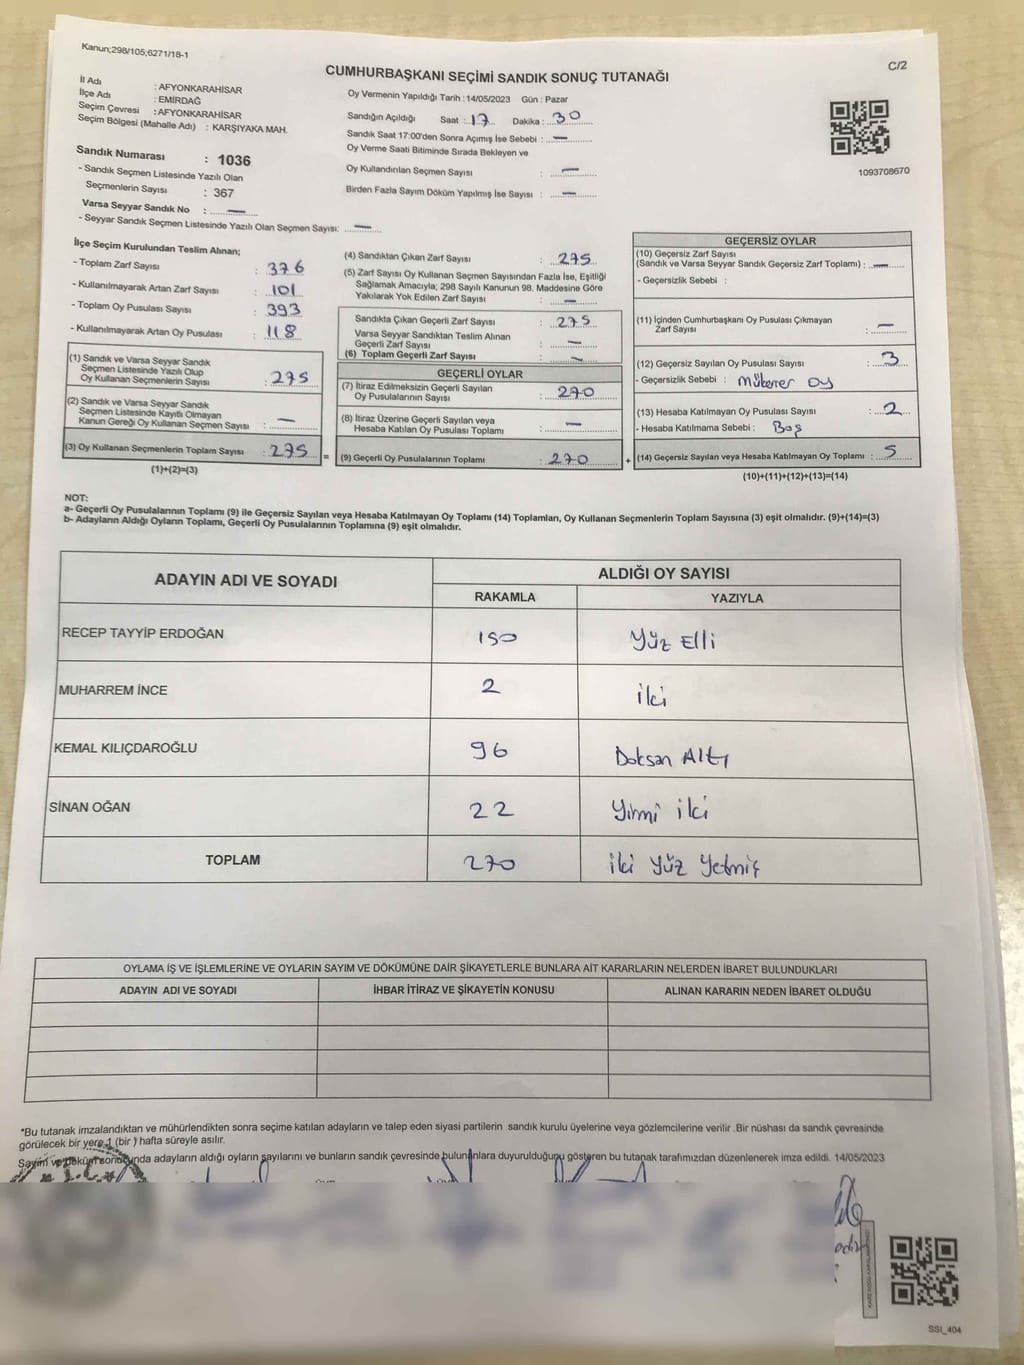 Kanun;298/105;6271/18-1
C/2
CUMHURBAŞKANI SEÇİMİ SANDIK SONUÇ TUTANAĞI
İl Adı : AFYONKARAHİSAR
İlçe Adı : EMİRDAĞ
Seçim Çevresi : AFYONKARAHİSAR
Seçim Bölgesi (Mahalle Adı) : KARŞIYAKA MAH.
Sandık Numarası : 1036
- Sandık Seçmen Listesinde Yazılı Olan
Seçmenlerin Sayısı : 367
Varsa Seyyar Sandık No : —
- Seyyar Sandık Seçmen Listesinde Yazılı Olan Seçmen Sayısı: —
Oy Vermenin Yapıldığı Tarih : 14/05/2023 Gün : Pazar
Sandığın Açıldığı Saat : 17 Dakika : 30
Sandık Saat 17:00'den Sonra Açımış İse Sebebi : —
Oy Verme Saati Bitiminde Sırada Bekleyen ve
Oy Kullandırılan Seçmen Sayısı : —
Birden Fazla Sayım Döküm Yapılmış İse Sayısı : —
1093708670
İlçe Seçim Kurulundan Teslim Alınan;
- Toplam Zarf Sayısı : 376
- Kullanılmayarak Artan Zarf Sayısı : 101
- Toplam Oy Pusulası Sayısı : 393
- Kullanılmayarak Artan Oy Pusulası : 118
(1) Sandık ve Varsa Seyyar Sandık
Seçmen Listesinde Yazılı Olup
Oy Kullanan Seçmenlerin Sayısı : 275
(2) Sandık ve Varsa Seyyar Sandık
Seçmen Listesinde Kayıtlı Olmayan
Kanun Gereği Oy Kullanan Seçmen Sayısı : —
(3) Oy Kullanan Seçmenlerin Toplam Sayısı : 275
(1)+(2)=(3)
=
(4) Sandıktan Çıkan Zarf Sayısı : 275
(5) Zarf Sayısı Oy Kullanan Seçmen Sayısından Fazla İse, Eşitliği
Sağlamak Amacıyla; 298 Sayılı Kanunun 98. Maddesine Göre
Yakılarak Yok Edilen Zarf Sayısı : —
Sandıkta Çıkan Geçerli Zarf Sayısı : 275
Varsa Seyyar Sandıktan Teslim Alınan
Geçerli Zarf Sayısı : —
(6) Toplam Geçerli Zarf Sayısı : —
GEÇERLİ OYLAR
(7) İtiraz Edilmeksizin Geçerli Sayılan
Oy Pusulalarının Sayısı : 270
(8) İtiraz Üzerine Geçerli Sayılan veya
Hesaba Katılan Oy Pusulası Toplamı : —
(9) Geçerli Oy Pusulalarının Toplamı : 270
+
GEÇERSİZ OYLAR
(10) Geçersiz Zarf Sayısı
(Sandık ve Varsa Seyyar Sandık Geçersiz Zarf Toplamı) : —
- Geçersizlik Sebebi :
(11) İçinden Cumhurbaşkanı Oy Pusulası Çıkmayan
Zarf Sayısı : —
(12) Geçersiz Sayılan Oy Pusulası Sayısı : 3
- Geçersizlik Sebebi : Mükerrer oy
(13) Hesaba Katılmayan Oy Pusulası Sayısı : 2
- Hesaba Katılmama Sebebi : Boş
(14) Geçersiz Sayılan veya Hesaba Katılmayan Oy Toplamı : 5
(10)+(11)+(12)+(13)=(14)
NOT:
a- Geçerli Oy Pusulalarının Toplamı (9) ile Geçersiz Sayılan veya Hesaba Katılmayan Oy Toplamı (14) Toplamları, Oy Kullanan Seçmenlerin Toplam Sayısına (3) eşit olmalıdır. (9)+(14)=(3)
b- Adayların Aldığı Oyların Toplamı, Geçerli Oy Pusulalarının Toplamına (9) eşit olmalıdır.
ADAYIN ADI VE SOYADI ALDIĞI OY SAYISI
RAKAMLA YAZIYLA
RECEP TAYYİP ERDOĞAN 150 Yüz Elli
MUHARREM İNCE 2 iki
KEMAL KILIÇDAROĞLU 96 Doksan Altı
SİNAN OĞAN 22 Yirmi iki
TOPLAM 270 iki Yüz Yetmiş
OYLAMA İŞ VE İŞLEMLERİNE VE OYLARIN SAYIM VE DÖKÜMÜNE DAİR ŞİKAYETLERLE BUNLARA AİT KARARLARIN NELERDEN İBARET BULUNDUKLARI
ADAYIN ADI VE SOYADI İHBAR İTİRAZ VE ŞİKAYETİN KONUSU ALINAN KARARIN NEDEN İBARET OLDUĞU
*Bu tutanak imzalandıktan ve mühürlendikten sonra seçime katılan adayların ve talep eden siyasi partilerin sandık kurulu üyelerine veya gözlemcilerine verilir .Bir nüshası da sandık çevresinde
görülecek bir yere 1 (bir ) hafta süreyle asılır.
Sayım ve döküm sonucunda adayların aldığı oyların sayılarını ve bunların sandık çevresinde bulunanlara duyurulduğunu gösteren bu tutanak tarafımızdan düzenlenerek imza edildi. 14/05/2023
T.C.
SSI_404